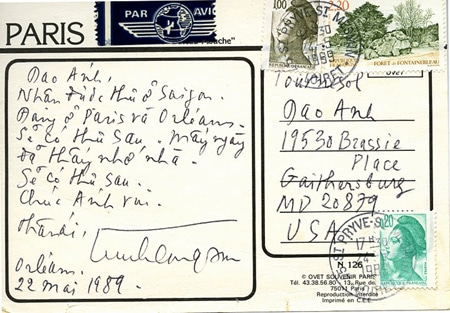 PARIS
PAR AVION
1,00
2,20
FORÊT DE FONTAINEBLEAU
Dao Ánh,
Nhận được thư ở Saigon.
Đang ở Paris và Orléans.
Sẽ có thư sau. Mấy ngày
đã thấy nhớ nhà.
Sẽ có thư sau.
Chúc Anh vui.
Thân ái,
Orléans,
22 mai 1989.
Dao Ánh
19530 Brassie
Place
Gaithersburg
MD 20879
USA
0,20
N 126
© OVET SOUVENIR PARIS
75011 Paris
Reproduction interdite
Imprimé en C.E.E.